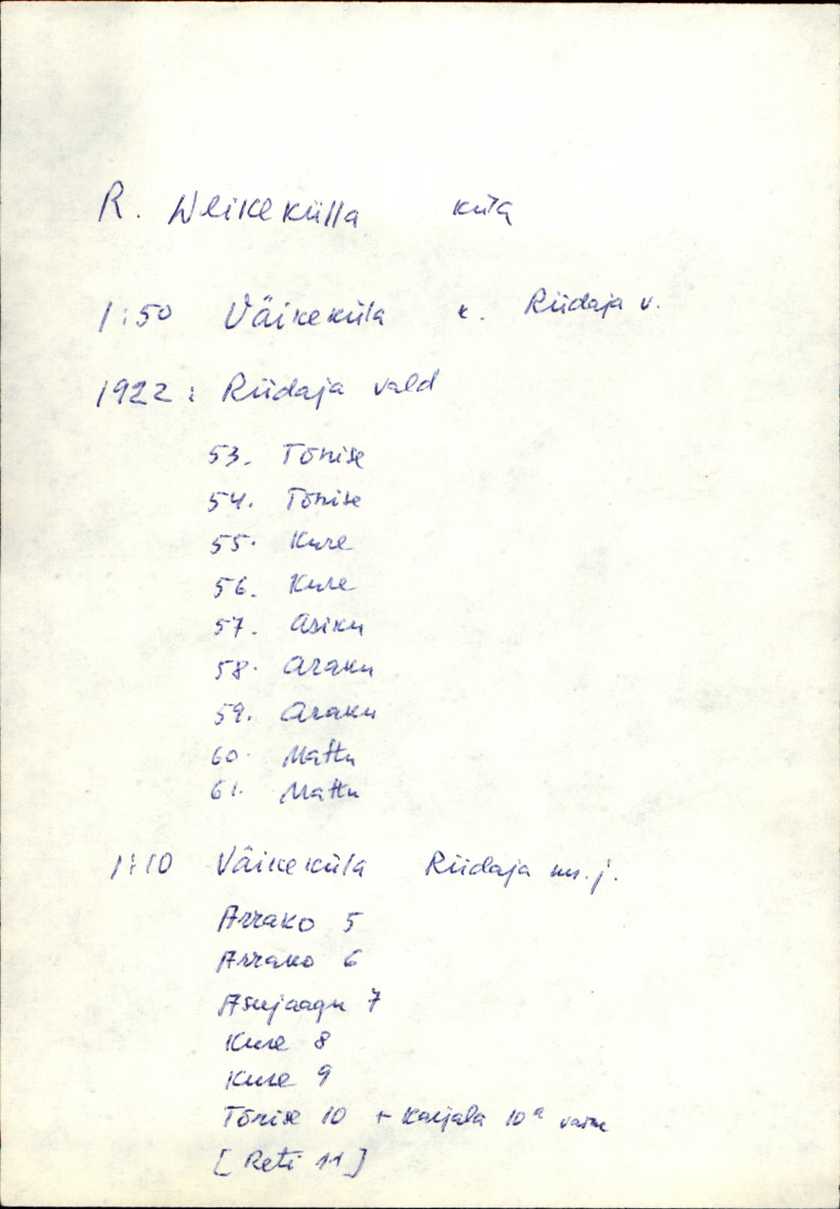 R. Weikekülla küla
1:50 Väikeküla k. Riidaja v.
1922: Riidaja vald
53. Tõnise
54. Tõnise
55. Kure
56. Kure
57. Asiku
58. Araku
59. Araku
60. Mattu
61. Mattu
1:10 Väikeküla Riidaja m.j.
Arrako 5
Arrako 6
Asujaagu 7
Kure 8
Kure 9
Tõnise 10 + Karjala 10a
[Reti 11]